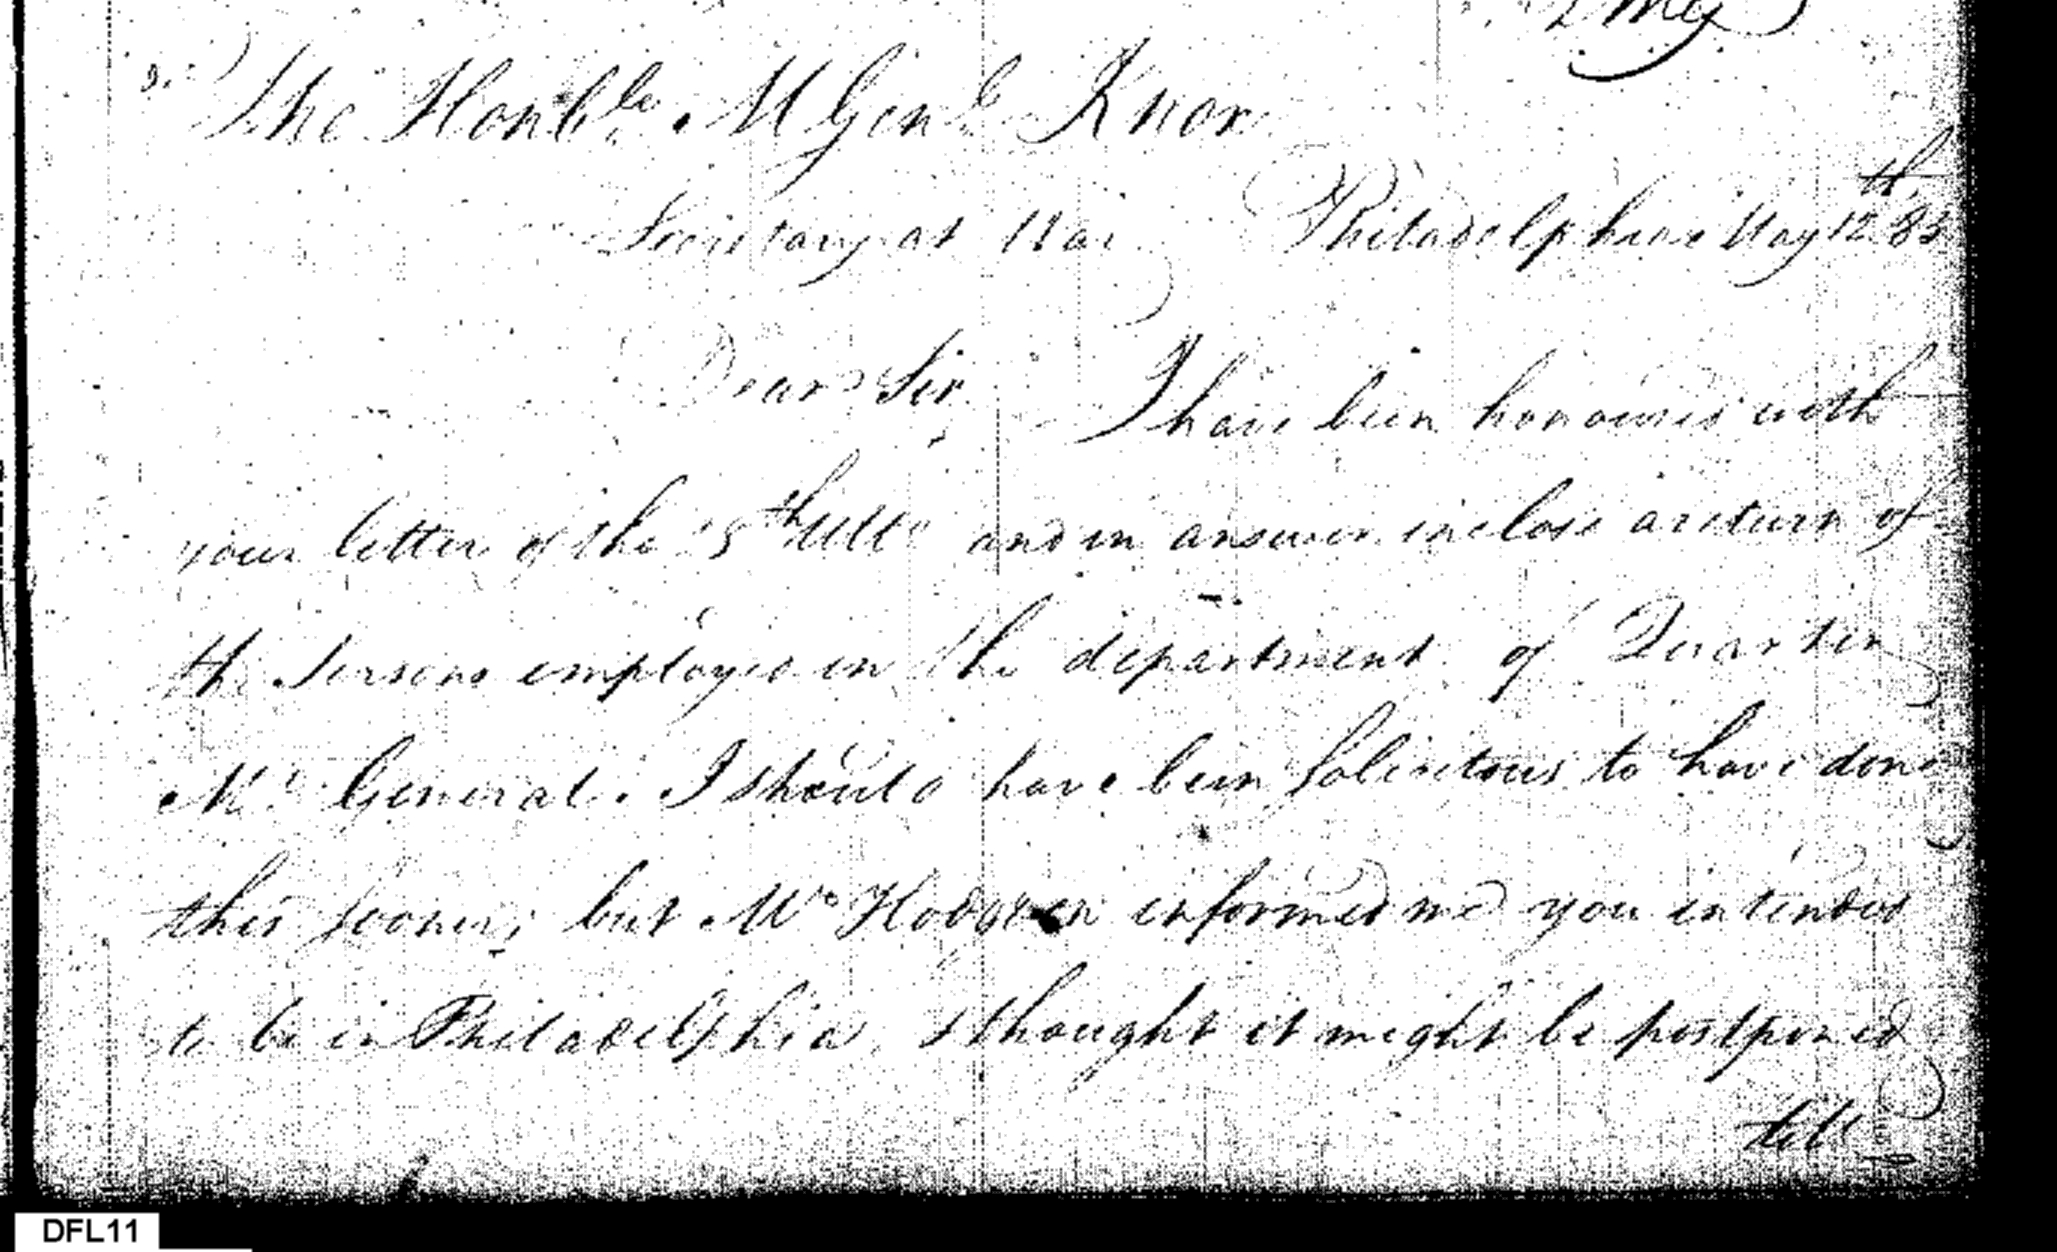 The Honble. M Genl Knox
Secretary at War Philadelphia May 12th. 85
Dear Sir I have been honoured with
your letter of the 5th Ulto and in answer inclose a return of
the Persons employed in the department of Quarter
Mr. General. I should have been solicitous to have done
this sooner; but Mr Hodgson informed me you intended
to be in Philadelphia, I thought it might be postponed
till
DFL11